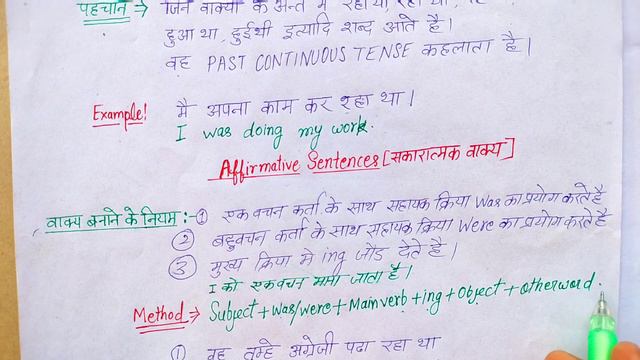 पहचान → जिन वाक्यों के अन्त में रहा था, रही थी,
हुआ था, हुईथी इत्यादि शब्द आते है।
वह PAST CONTINUOUS TENSE कहलाता है।
Example! मै अपना काम कर रहा था।
I was doing my work.
Affirmative Sentences [सकारात्मक वाक्य]
वाक्य बनाने के नियम :- ① एकवचन कर्ता के साथ सहायक क्रिया Was का प्रयोग करते है
② बहुवचन कर्ता के साथ सहायक क्रिया Were का प्रयोग करते है
③ मुख्य क्रिया मे ing जोड देते है।
I को एकवचन माना जाता है।
Method → Subject + was/were + Main verb + ing + Object + otherword.
① वह तुम्हे अंग्रेजी पढा रहा था